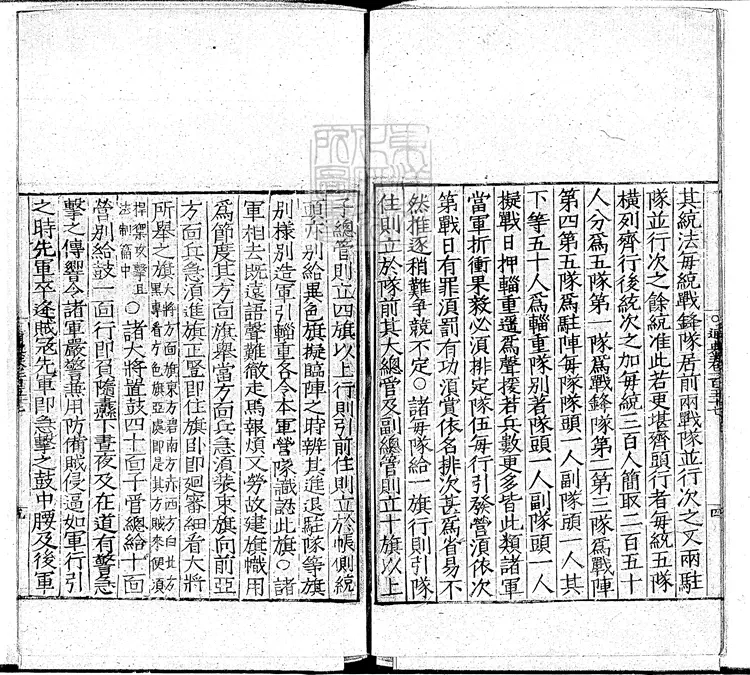 其統法每統戰鋒隊居前兩戰隊並行次之又兩駐
隊並行次之餘統准此若更堪齊頭行者每統五隊
橫列齊行後統次之加每統三百人簡取二百五十
人分爲五隊第一隊爲戰鋒隊第二第三隊爲戰陣
第四第五隊爲駐陣每隊隊頭一人副隊頭一人其
下等五十人爲輜重隊別著隊頭一人副隊頭一人
擬戰日押輜重遥爲聲援若兵數更多皆此類諸軍
當軍折衝果毅必須排定隊伍每行引發營須依次
第戰日有罪須罰有功須賞依名排次甚爲省易不
然推逐稍難爭競不定○諸每隊給一旗行則引隊
住則立於隊前其大總管及副總管則立十旗以上
子總管則立四旗以上行則引前住則立於帳側統
頭亦別給異色旗擬臨陣之時辨其進退駐隊等旗
別樣別造軍引輜重各令本軍營隊識認此旗○諸
軍相去既遠語聲難徹走馬報煩又勞故建旗幟用
爲節度其方面旗舉當方面兵急須裝束旗向前亞
方面兵急須進旗正豎即住旗臥即迴審細看大將
所舉之旗大將方面旗東方碧南方赤西方白北方黑專看方色旗亞處即是其方賊來便須
捍禦攻擊且法制篇中○諸大將置鼓四十面子管總給十面
營別給鼓一面行即負隨纛下晝夜及在道有警急
擊之傳響令諸軍嚴警兼用防備賊侵逼如軍行引
之時先軍卒逢賊寇先軍即急擊之鼓中腰及後軍